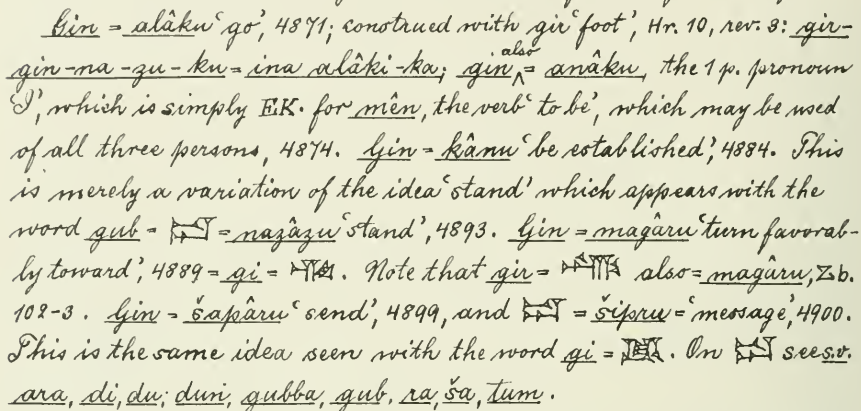 Gin = alâku ‘go’, 4871; construed with gir ‘foot’, Hr. 10, rev. 3: gir-
gin-na-zu-ku = ina alâki-ka; gin also = anâku, the 1 p. pronoun
‘I’, which is simply EK. for mên, the verb ‘to be’, which may be used
of all three persons, 4874. Gin = kânu ‘be established’, 4884. This
is merely a variation of the idea ‘stand’ which appears with the
word gub = 𒁺 = nazâzu ‘stand’, 4893. Gin = magâru ‘turn favorab-
ly toward’, 4889 = gi = . Note that gir = also = magâru, Zb.
102-3. Gin = šapâru ‘send’, 4899, and 𒁺 = šipru = ‘message’, 4900.
This is the same idea seen with the word gi = . On 𒁺 see s.v.
ara, di, du; duri, gubba, gub, ra, ša, tum.